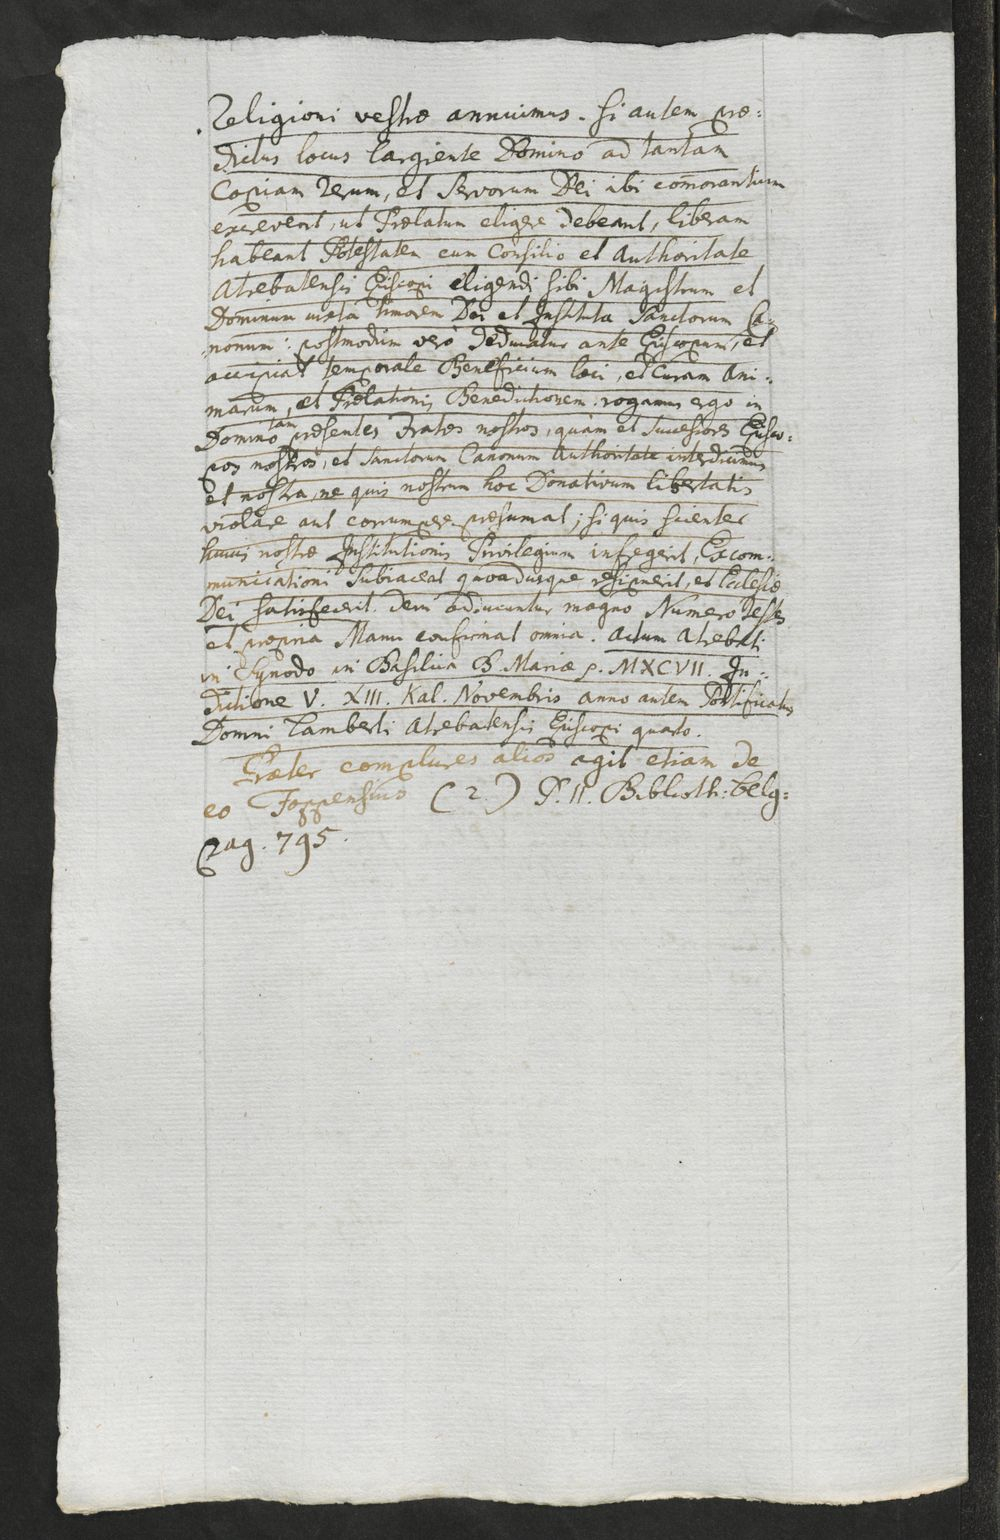 Religioni vestræ annuimus. Si autem præ:
dictus locus largiente Domino ad tantam
Copiam rerum, et servorum Dei ibi com̄orantium
excreverit, ut Prælatum eligere debeant, liberam
habeant Potestatem cum Consilio et Authoritate
Atrebatensis Episcopi eligendi sibi Magistrum et
Dominum iuxta timorem Dei et Instituta Sanctorum Ca:
nonum: postmodum verò deducatur ante Episcopum, et
accipiat temporale Beneficium loci, et Curam Ani:
marum, et Prælationis Benedictionem: rogamus ergo in
Domino tam præsentes Fratres nostros, quàm et Successores Episco:
pos nostros, et Sanctorum Canonum Authoritate interdicimus
et nostra, ne quis nostrum hoc Donativum libertatis
violare aut corrumpere præsumat; si quis scienter
huius nostræ Institutionis Privilegium infregerit, Excom:
municationi Subiaceat quoadusque resipuerit, et Ecclesiæ
Dei satisfecerit. dein adiucuntur magno Numero testes
et propria Manu confirmat omnia. Actum Atrebati
in Synodo in Basilica B. Mariæ MXCVII. In:
dictione V. XIII. Kal. Novembris anno autem Pontificatus
Domni Lamberti Atrebatensis Episcopi quarto.
Præter complures alios agit etiam de
eo Foppensius (2) P. II. Biblioth: belg:
pag. 795.